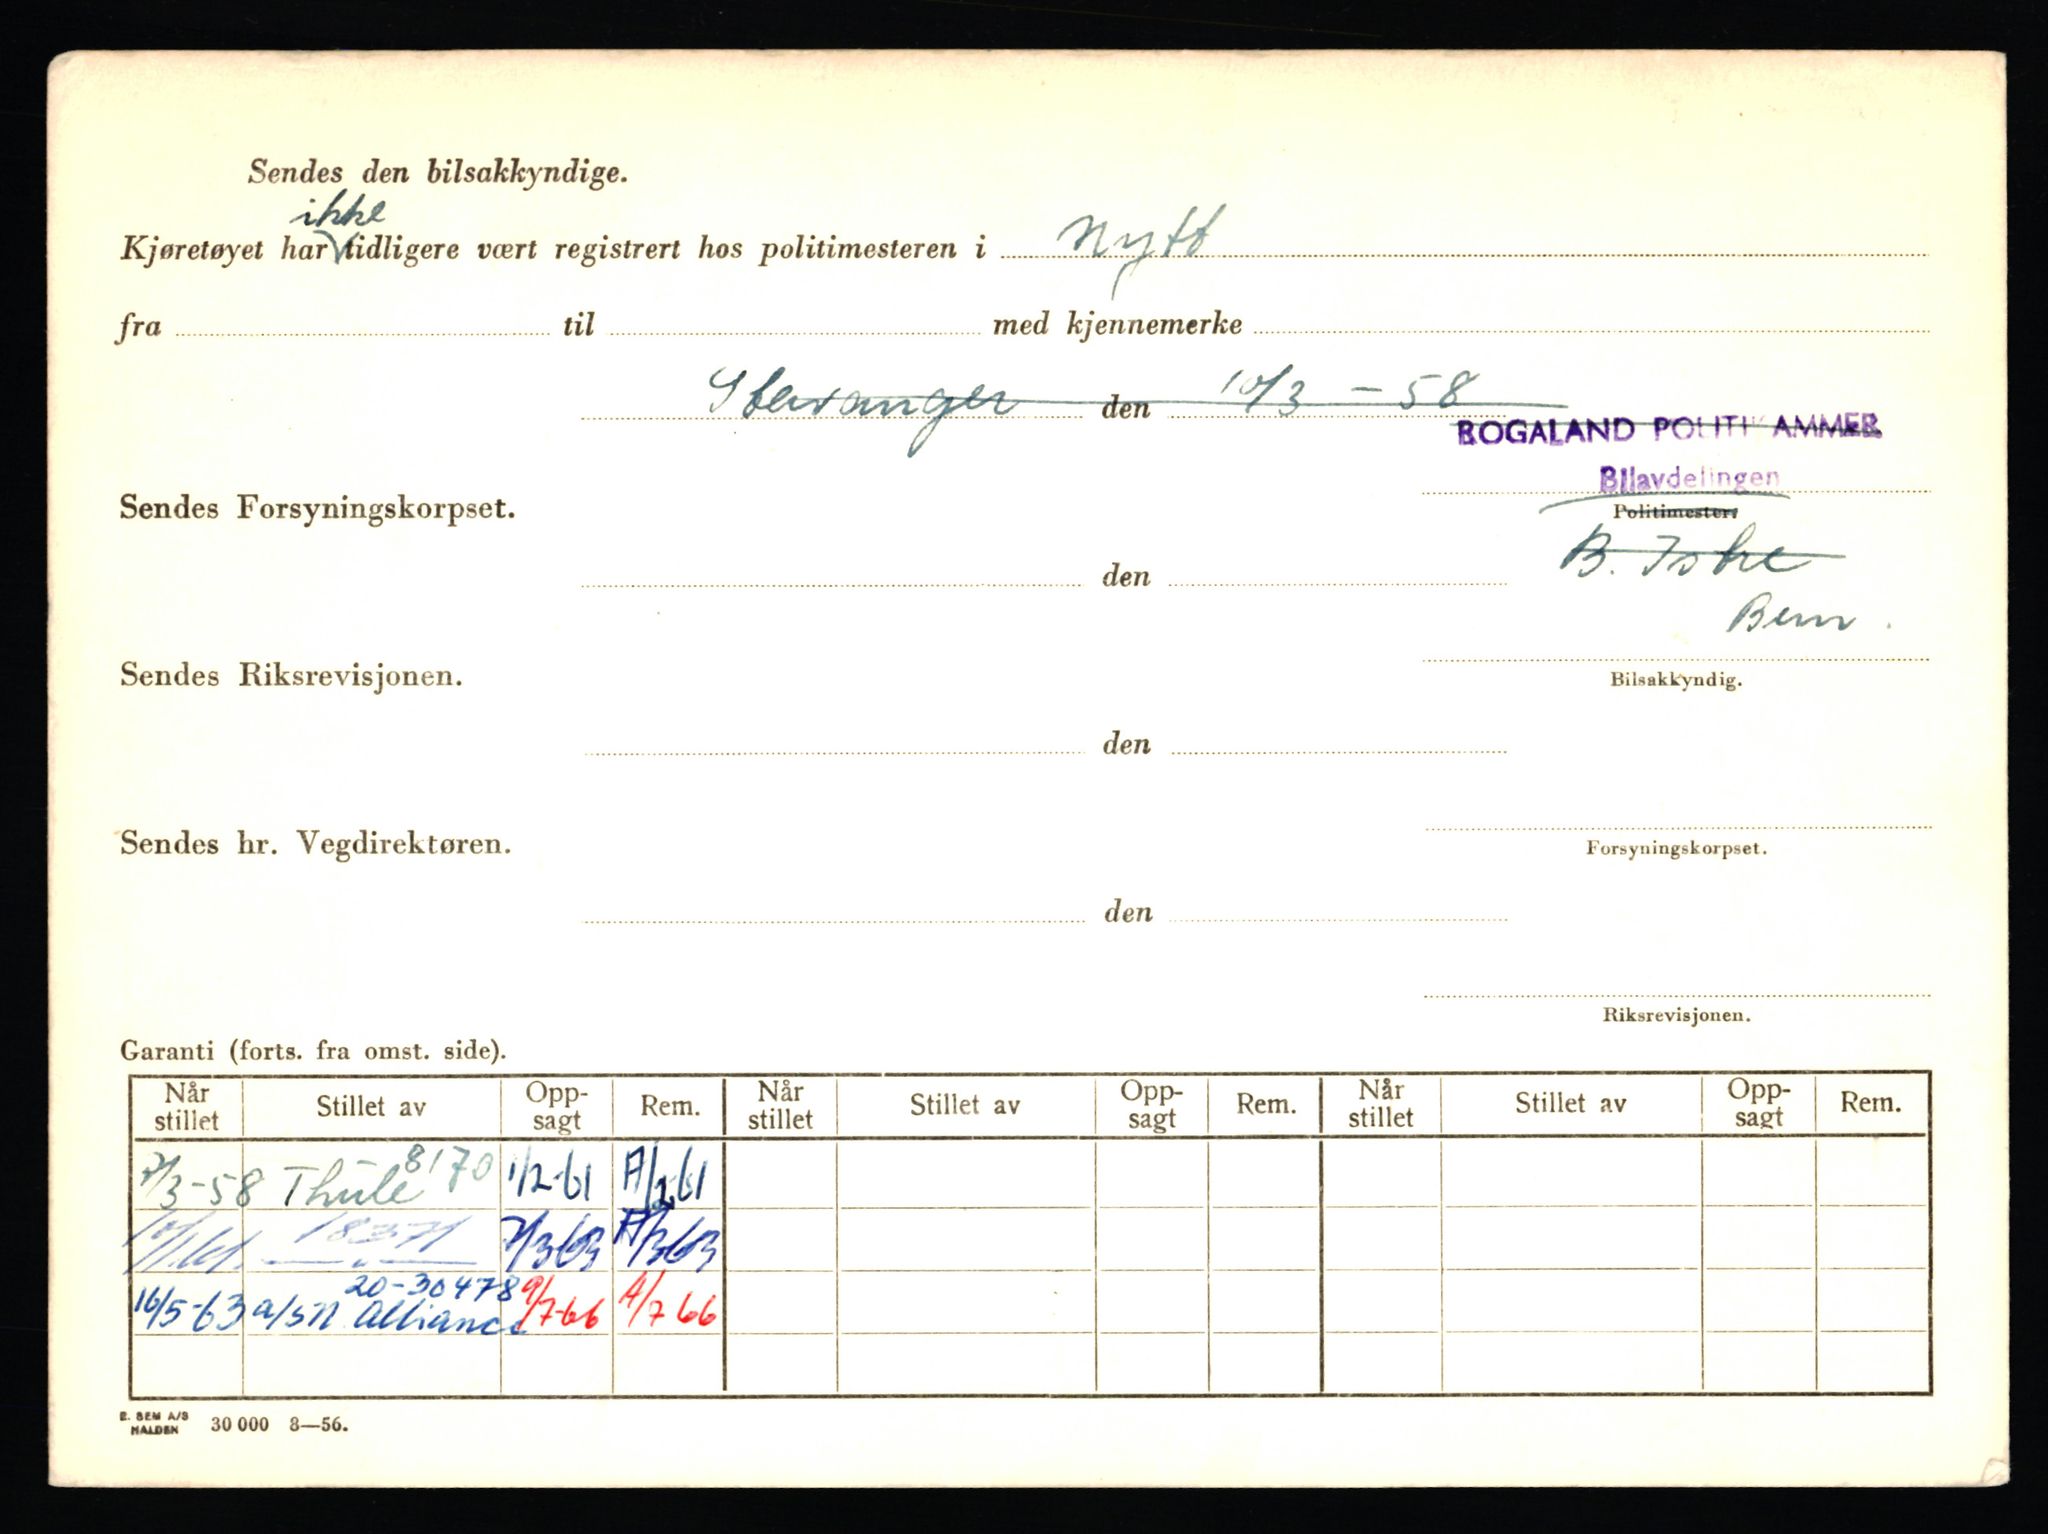 Sendes den bilsakkyndige.
ikke
Kjøretøyet har tidligere vært registrert hos politimesteren i Nytt
fra til med kjennemerke
Stavanger den 10/3 - 58
ROGALAND POLITIKAMMER
Bilavdelingen
Sendes Forsyningskorpset.
Politimester.
den
B.
Sendes Riksrevisjonen.
Bilsakkyndig.
den
Sendes hr. Vegdirektøren.
Forsyningskorpset.
den
Riksrevisjonen.
Garanti (forts. fra omst. side).
Når stillet Stillet av Opp-sagt Rem. Når stillet Stillet av Opp-sagt Rem. Når stillet Stillet av Opp-sagt Rem.
/3-58 Thule 8170 1/2-61 A/2 61
18371 /3 63 A/3 63
20-30478
16/5-63 a/s N. Alliance 9/7-66 A/7 66
E. SEM A/S
HALDEN 30 000 8—56.